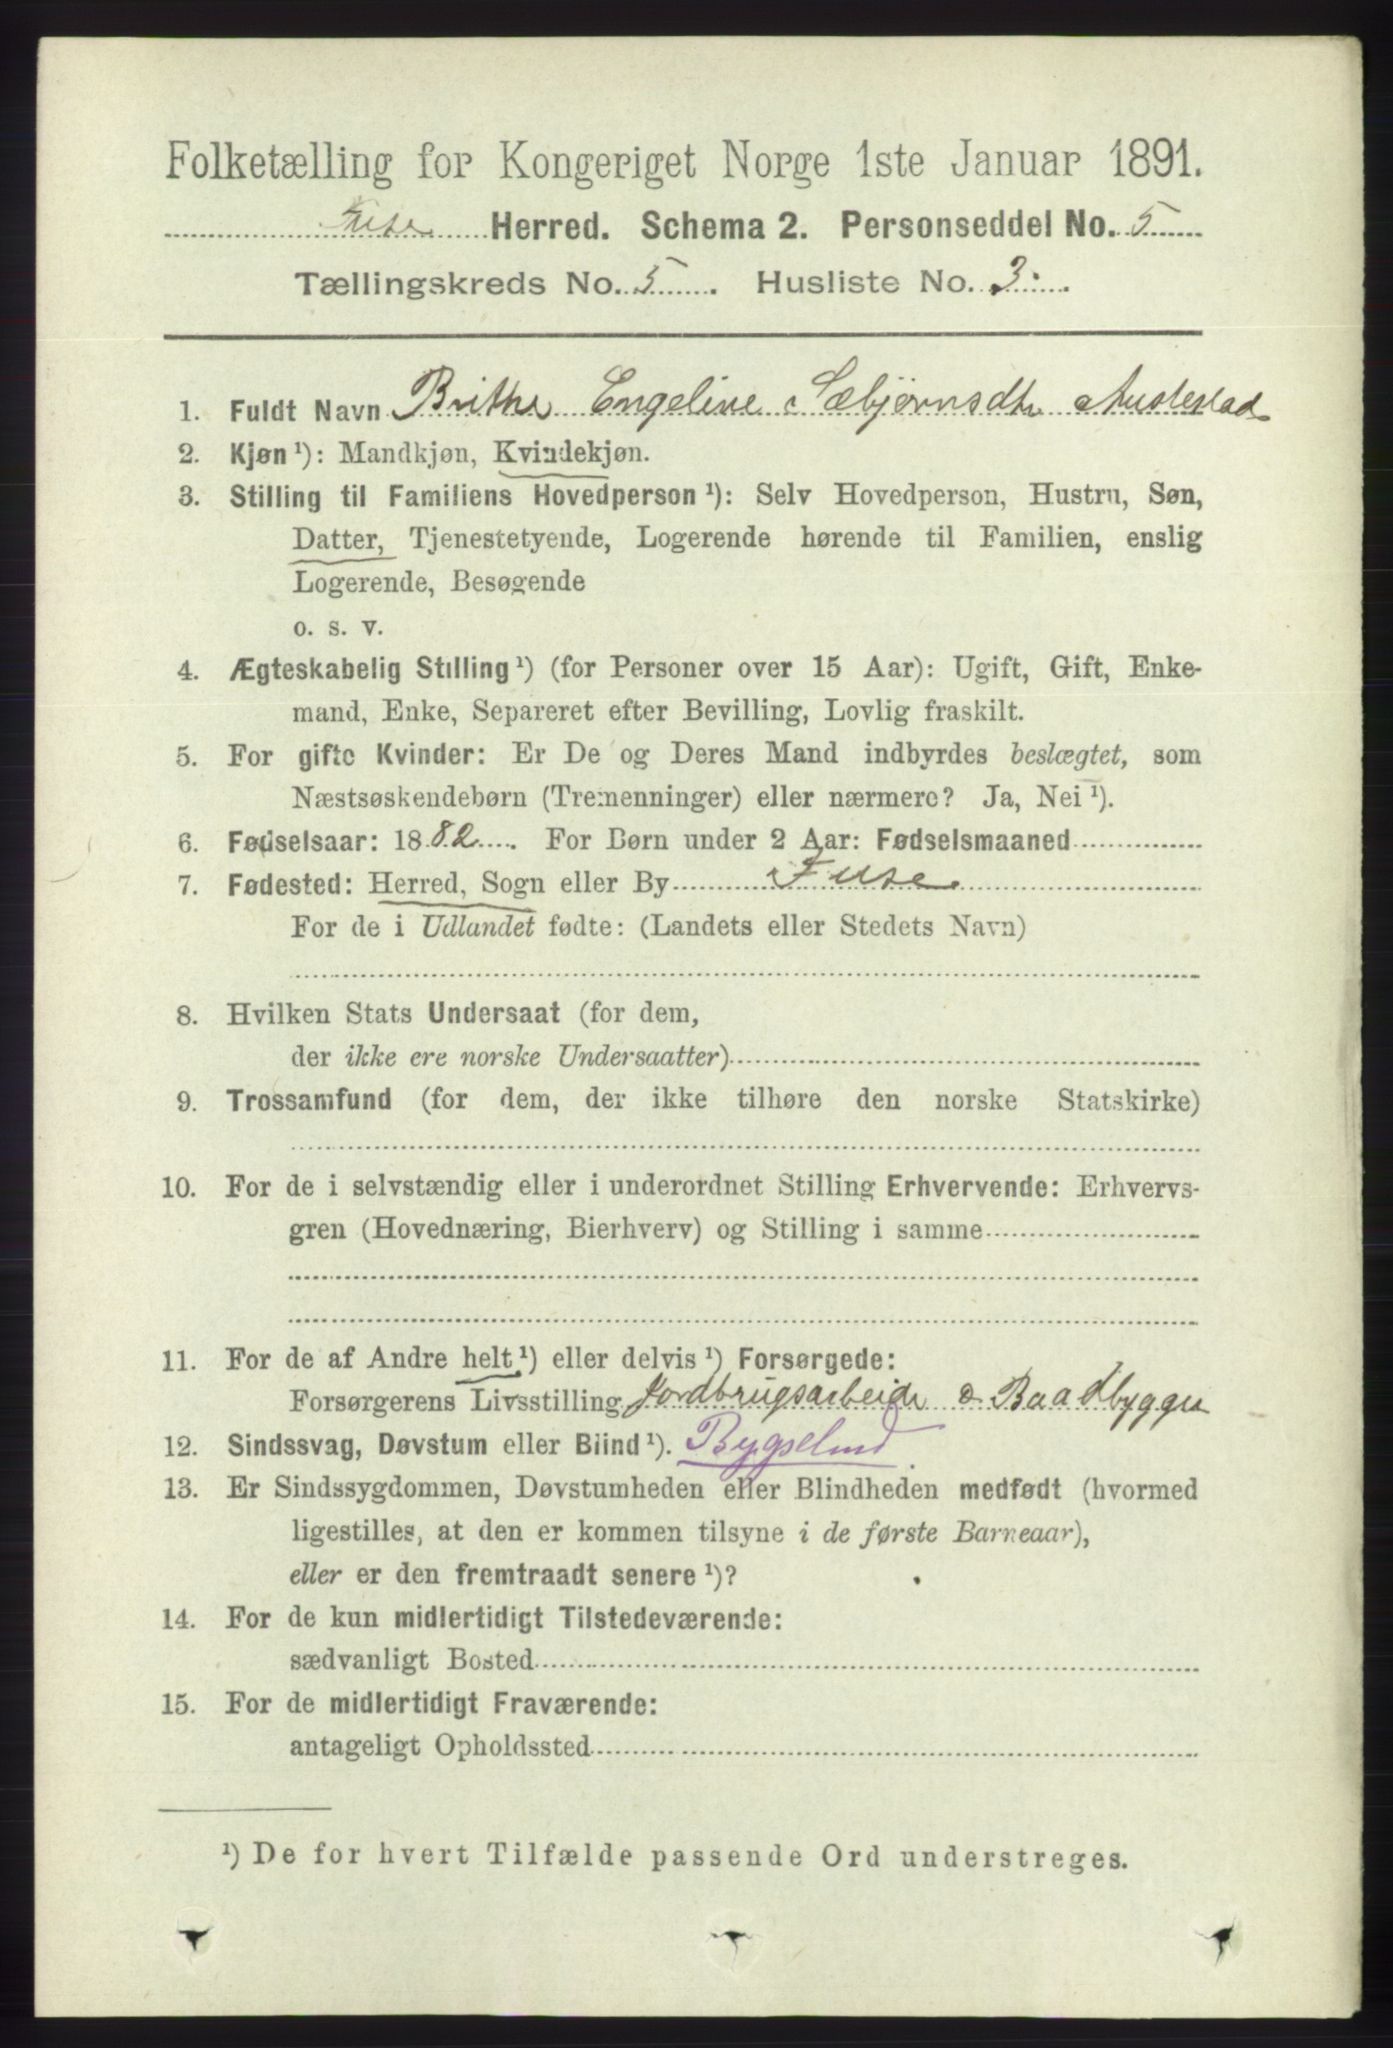 Folketælling for Kongeriget Norge 1ste Januar 1891.
Fuse Herred. Schema 2. Personseddel No. 5
Tællingskreds No. 5. Husliste No. 3.
1. Fuldt Navn Brithe Engeline Sæbjørnsdtr Austestad
2. Kjøn ¹): Mandkjøn, Kvindekjøn.
3. Stilling til Familiens Hovedperson ¹): Selv Hovedperson, Hustru, Søn,
Datter, Tjenestetyende, Logerende hørende til Familien, enslig
Logerende, Besøgende
o. s. v.
4. Ægteskabelig Stilling ¹) (for Personer over 15 Aar): Ugift, Gift, Enke-
mand, Enke, Separeret efter Bevilling, Lovlig fraskilt.
5. For gifte Kvinder: Er De og Deres Mand indbyrdes beslægtet, som
Næstsøskendebørn (Tremenninger) eller nærmere? Ja, Nei ¹).
6. Fødselsaar: 1882. For Børn under 2 Aar: Fødselsmaaned
7. Fødested: Herred, Sogn eller By Fuse
For de i Udlandet fødte: (Landets eller Stedets Navn)
8. Hvilken Stats Undersaat (for dem,
der ikke ere norske Undersaatter)
9. Trossamfund (for dem, der ikke tilhøre den norske Statskirke)
10. For de i selvstændig eller i underordnet Stilling Erhvervende: Erhvervs-
gren (Hovednæring, Bierhverv) og Stilling i samme
11. For de af Andre helt ¹) eller delvis ¹) Forsørgede:
Forsørgerens Livsstilling Jordbrugsarbeide & Baadbygger
12. Sindssvag, Døvstum eller Blind ¹). Bygselmd
13. Er Sindssygdommen, Døvstumheden eller Blindheden medfødt (hvormed
ligestilles, at den er kommen tilsyne i de første Barneaar),
eller er den fremtraadt senere ¹)?
14. For de kun midlertidigt Tilstedeværende:
sædvanligt Bosted
15. For de midlertidigt Fraværende:
antageligt Opholdssted
¹) De for hvert Tilfælde passende Ord understreges.